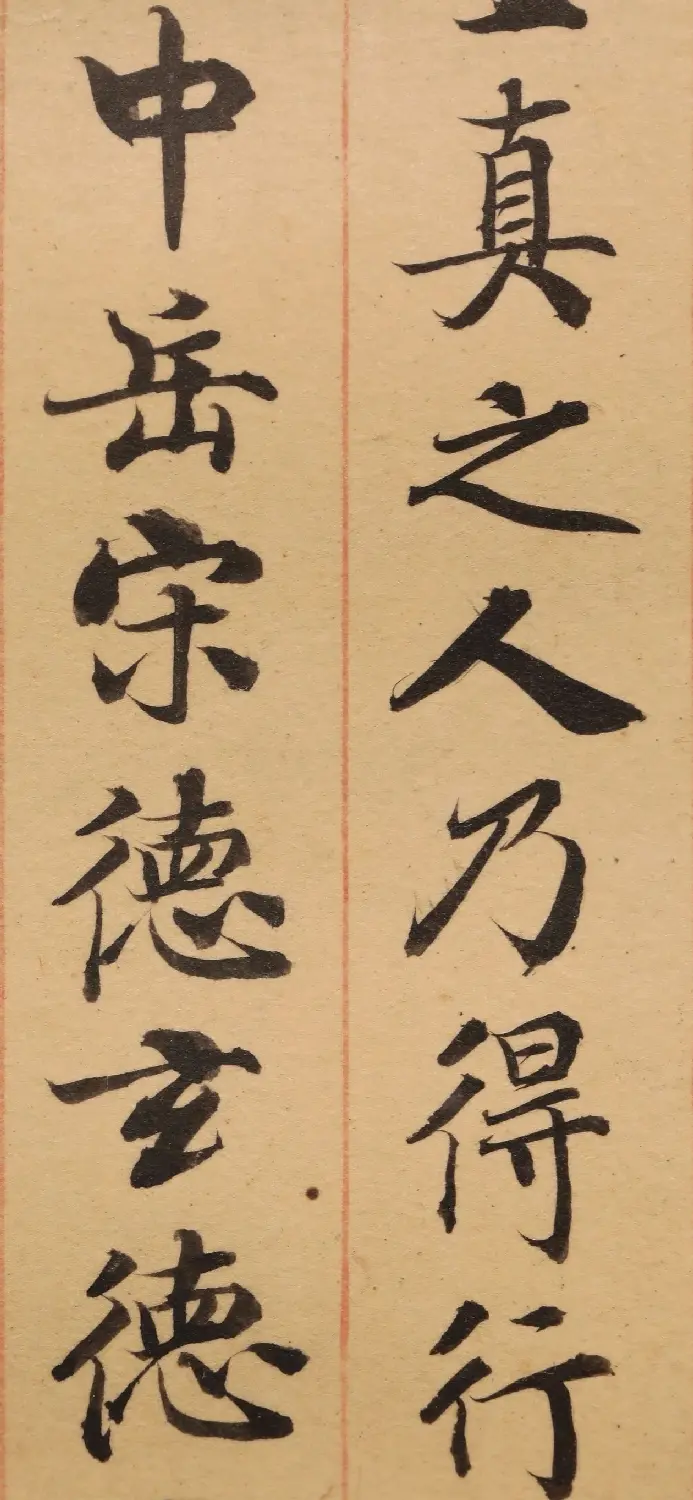 真之人乃得行
中岳宋德玄德